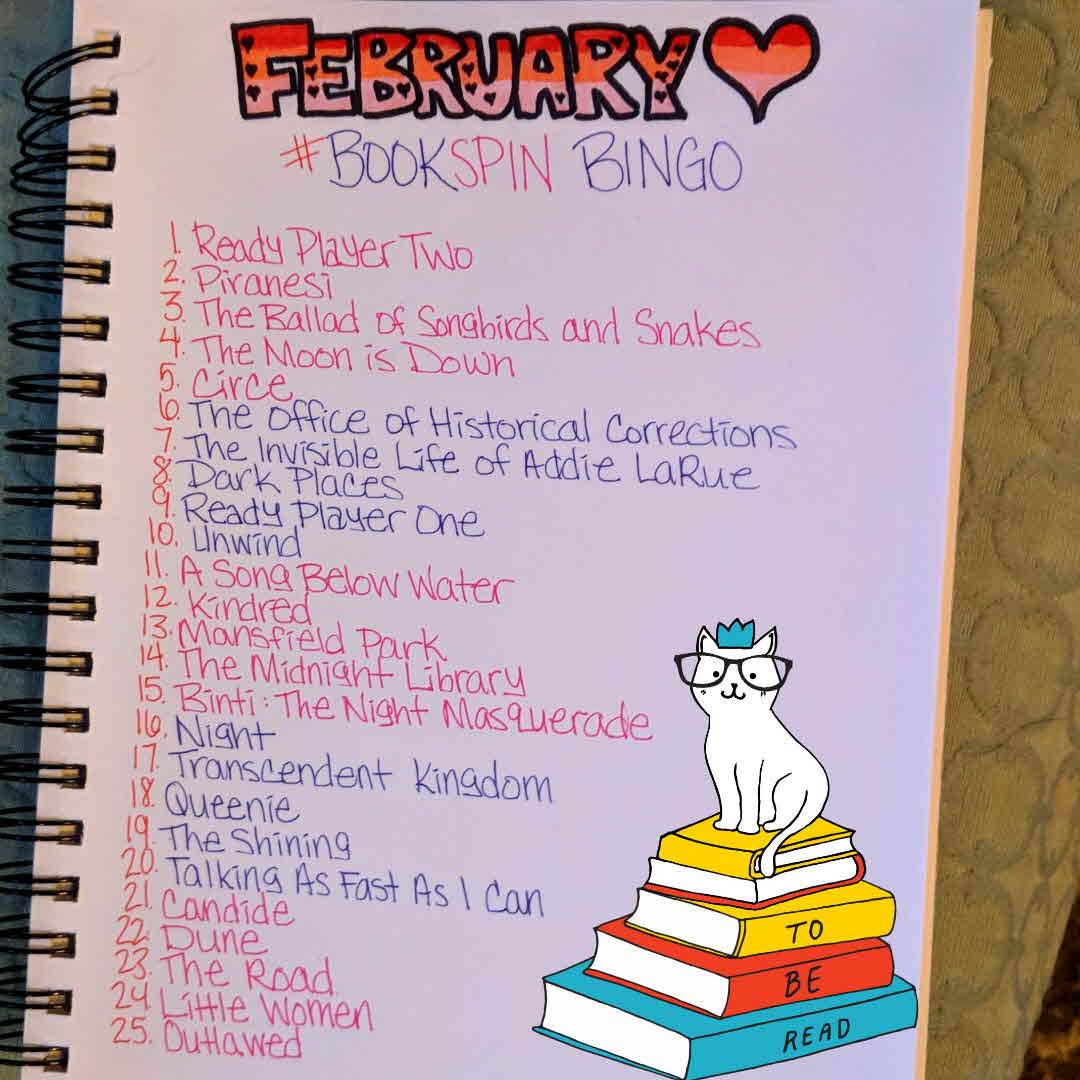 FEBRUARY
#BOOKSPIN BINGO
1. Ready Player Two
2. Piranesi
3. The Ballad of Songbirds and Snakes
4. The Moon is Down
5. Circe
6. The Office of Historical Corrections
7. The Invisible Life of Addie LaRue
8. Dark Places
9. Ready Player One
10. Unwind
11. A Song Below Water
12. Kindred
13. Mansfield Park
14. The Midnight Library
15. Binti: The Night Masquerade
16. Night
17. Transcendent Kingdom
18. Queenie
19. The Shining
20. Talking As Fast As I Can
21. Candide
22. Dune
23. The Road
24 Little Women
25. Outlawed
TO
BE
READ